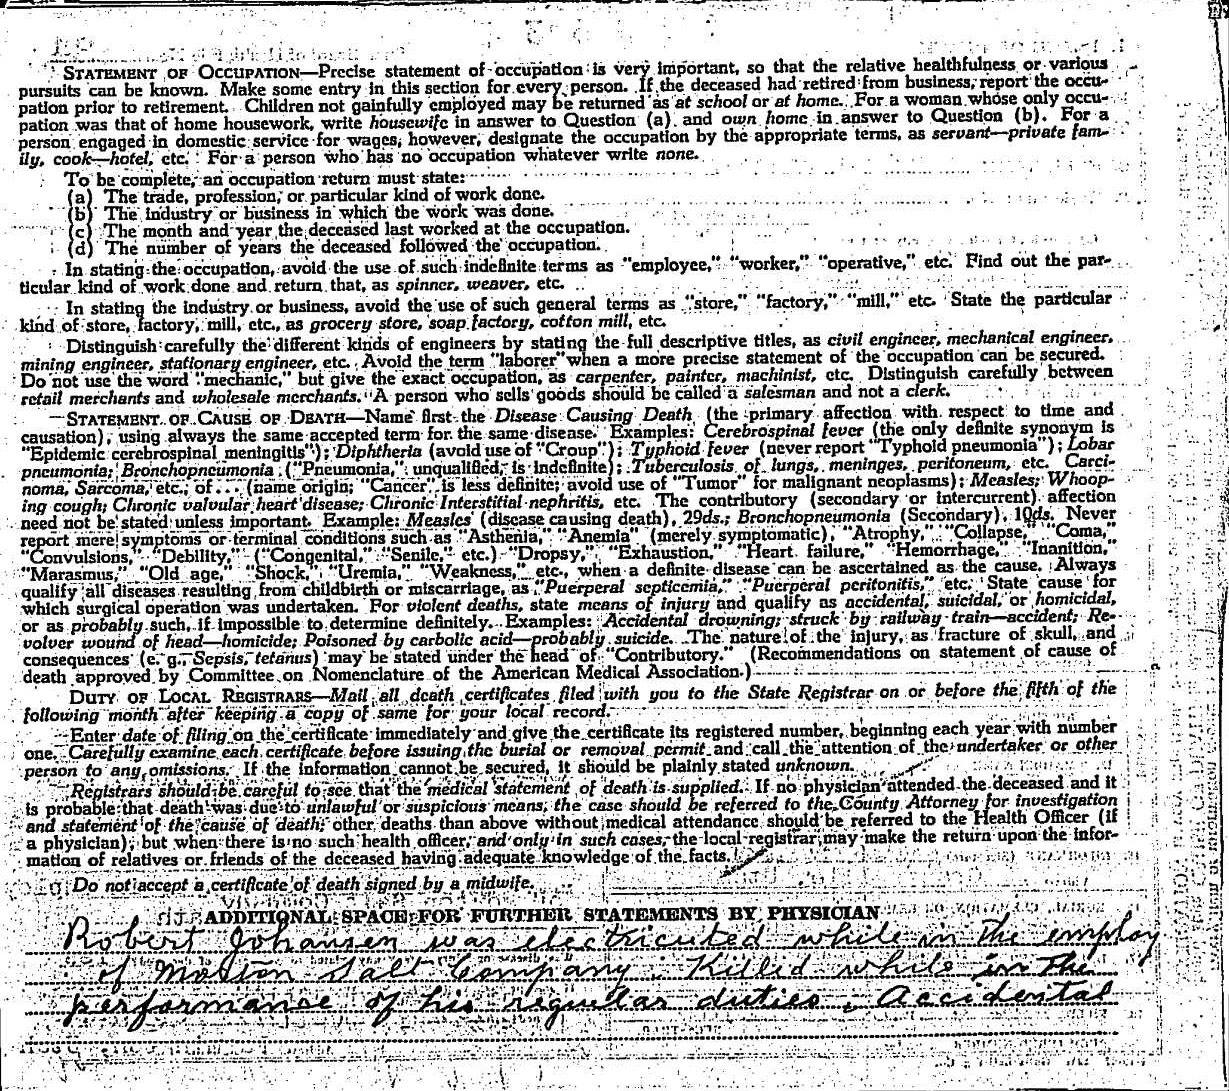 STATEMENT OF OCCUPATION—Precise statement of occupation is very important, so that the relative healthfulness or various
pursuits can be known. Make some entry in this section for every person. If the deceased had retired from business, report the occu-
pation prior to retirement. Children not gainfully employed may be returned as at school or at home. For a woman whose only occu-
pation was that of home housework, write housewife in answer to Question (a) and own home in answer to Question (b). For a
person engaged in domestic service for wages, however, designate the occupation by the appropriate terms, as servant—private fam-
ily, cook—hotel, etc. For a person who has no occupation whatever write none.
To be complete, an occupation return must state:
(a) The trade, profession, or particular kind of work done.
(b) The industry or business in which the work was done.
(c) The month and year the deceased last worked at the occupation.
(d) The number of years the deceased followed the occupation.
In stating the occupation, avoid the use of such indefinite terms as "employee," "worker," "operative," etc. Find out the par-
ticular kind of work done and return that, as spinner, weaver, etc.
In stating the industry or business, avoid the use of such general terms as "store," "factory," "mill," etc. State the particular
kind of store, factory, mill, etc., as grocery store, soap factory, cotton mill, etc.
Distinguish carefully the different kinds of engineers by stating the full descriptive titles, as civil engineer, mechanical engineer,
mining engineer, stationary engineer, etc. Avoid the term "laborer" when a more precise statement of the occupation can be secured.
Do not use the word "mechanic," but give the exact occupation, as carpenter, painter, machinist, etc. Distinguish carefully between
retail merchants and wholesale merchants. A person who sells goods should be called a salesman and not a clerk.
STATEMENT OF CAUSE OF DEATH—Name first the Disease Causing Death (the primary affection with respect to time and
causation), using always the same accepted term for the same disease. Examples: Cerebrospinal fever (the only definite synonym is
"Epidemic cerebrospinal meningitis"); Diphtheria (avoid use of "Croup"); Typhoid fever (never report "Typhoid pneumonia"); Lobar
pneumonia; Bronchopneumonia ("Pneumonia," unqualified, is indefinite); Tuberculosis of lungs, meninges, peritoneum, etc. Carci-
noma, Sarcoma, etc., of . . . (name origin; "Cancer" is less definite; avoid use of "Tumor" for malignant neoplasms); Measles; Whoop-
ing cough; Chronic valvular heart disease; Chronic Interstitial nephritis, etc. The contributory (secondary or intercurrent) affection
need not be stated unless important. Example: Measles (disease causing death), 29ds.; Bronchopneumonia (Secondary), 10ds. Never
report mere symptoms or terminal conditions such as "Asthenia," "Anemia" (merely symptomatic), "Atrophy," "Collapse," "Coma,"
"Convulsions," "Debility," ("Congenital," "Senile," etc.) "Dropsy," "Exhaustion," "Heart failure," "Hemorrhage," "Inanition,"
"Marasmus," "Old age," "Shock," "Uremia," "Weakness," etc., when a definite disease can be ascertained as the cause. Always
qualify all diseases resulting from childbirth or miscarriage, as "Puerperal septicemia," "Puerperal peritonitis," etc. State cause for
which surgical operation was undertaken. For violent deaths, state means of injury and qualify as accidental, suicidal, or homicidal,
or as probably such, if impossible to determine definitely. Examples: Accidental drowning; struck by railway train—accident; Re-
volver wound of head—homicide; Poisoned by carbolic acid—probably suicide. The nature of the injury, as fracture of skull, and
consequences (e. g., Sepsis, tetanus) may be stated under the head of "Contributory." (Recommendations on statement of cause of
death approved by Committee on Nomenclature of the American Medical Association.)
DUTY OF LOCAL REGISTRARS—Mail all death certificates filed with you to the State Registrar on or before the fifth of the
following month after keeping a copy of same for your local record.
Enter date of filing on the certificate immediately and give the certificate its registered number, beginning each year with number
one. Carefully examine each certificate before issuing the burial or removal permit and call the attention of the undertaker or other
person to any omissions. If the information cannot be secured, it should be plainly stated unknown.
Registrars should be careful to see that the medical statement of death is supplied. If no physician attended the deceased and it
is probable that death was due to unlawful or suspicious means, the case should be referred to the County Attorney for investigation
and statement of the cause of death; other deaths than above without medical attendance should be referred to the Health Officer (if
a physician); but when there is no such health officer, and only in such cases, the local registrar may make the return upon the infor-
mation of relatives or friends of the deceased having adequate knowledge of the facts.
Do not accept a certificate of death signed by a midwife.
ADDITIONAL SPACE FOR FURTHER STATEMENTS BY PHYSICIAN
Robert Johansen was electricuted while in the employ
of Morton Salt Company. Killed while in the
performance of his regular duties. Accidental